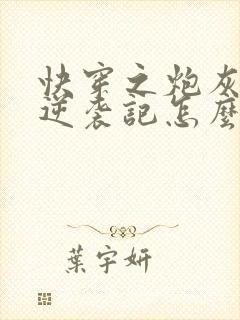 快穿之炮灰
逆袭記怎麼
葉宇妍